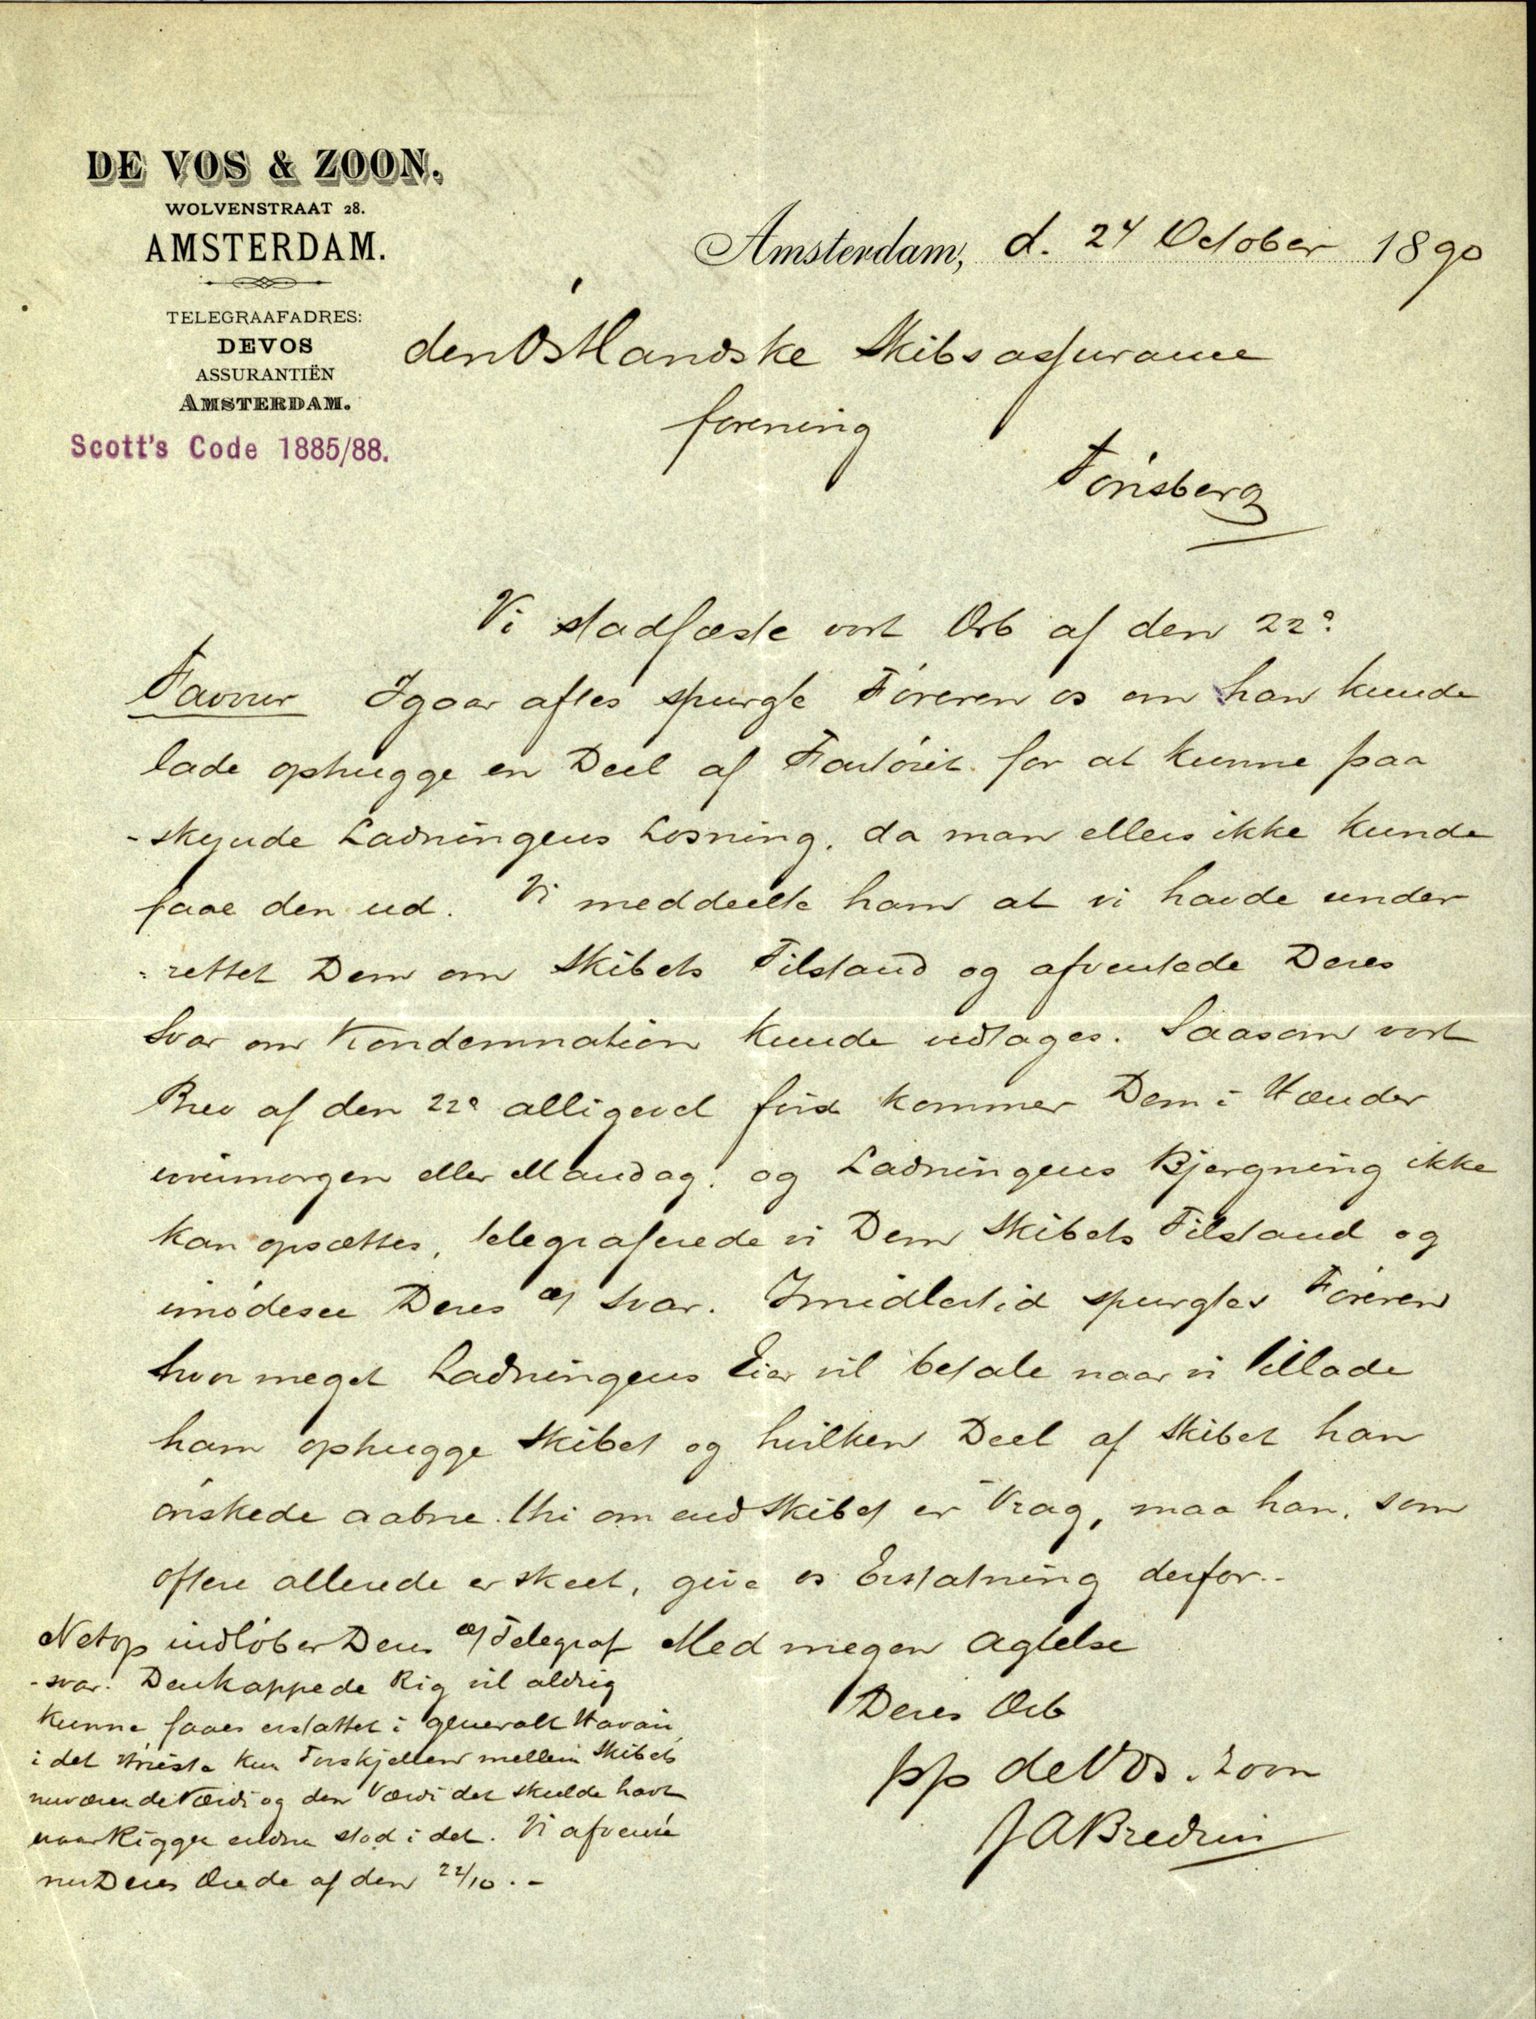 DE VOS & ZOON.
WOLVENSTRAAT 28.
AMSTERDAM.
TELEGRAAFADRES:
DEVOS
ASSURANTIËN
AMSTERDAM.
Scott's Code 1885/88.
Amsterdam, d. 24 October 1890
den Östlandske Skibsassurance
forening
Tönsberg
Vi stadfæste vort Örb af den 22º
Favour Igaar aftes spurgte Föreren os om han kunde
lade ophugge en Deel af Fartöiet for at kunne paa
-skynde Ladningens Losning, da man ellers ikke kunde
faae den ud. Vi meddeelte ham at vi havde under
-rettet Dem om Skibets Tilstand og afventede Deres
Svar om Kondemnation kunde udtages. Saasom vort
Brev af den 22º alligevel först kommer Dem i Hænder
overmorgen eller Mandag, og Ladningens Bjergning ikke
kan opsættes, telegraferede vi Dem Skibets Tilstand og
imödesee Deres Svar. Imidlertid spurgtes Föreren
hvor meget Ladningens Eier vil betale naar vi tillade
ham ophugge Skibet og hvilken Deel af Skibet han
önskede aabne. thi om end Skibet er Vrag, maa han, som
oftere allerede er skeet, give os Erstatning derfor.-
Med megen Agtelse
Deres Örb
pp de Vos & Zoon
Netop indlöber Deres Telegraf
-svar. Den kappede Rig vil aldrig
kunne faaes erstattet i generalt Havari,
i det höieste kun Forskjellen mellem Skibets
nuværende Værdi og den Værdi det skulde havt
naar Riggen endnu stod i det. Vi afvente
nu Deres Ærede af den 22/10.-